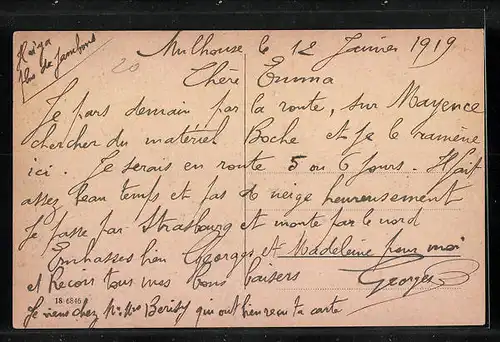 Il n'y a
plus de jambons
20
Mulhouse le 12 Janvier 1919
Chère Emma
Je pars demain par la route, sur Mayence
chercher du materiel Boche et je le ramène
ici. Je serais en route 5 ou 6 jours. Il fait
assez beau temps et pas de neige heureusement
Je passe par Strasbourg et monte par le nord
Embrasses bien Georges et Madeleine pour moi
et recois tous mes bons baisers
Georges
18 6846
Je viens chez Mr Mme qui ont bien recu ta carte